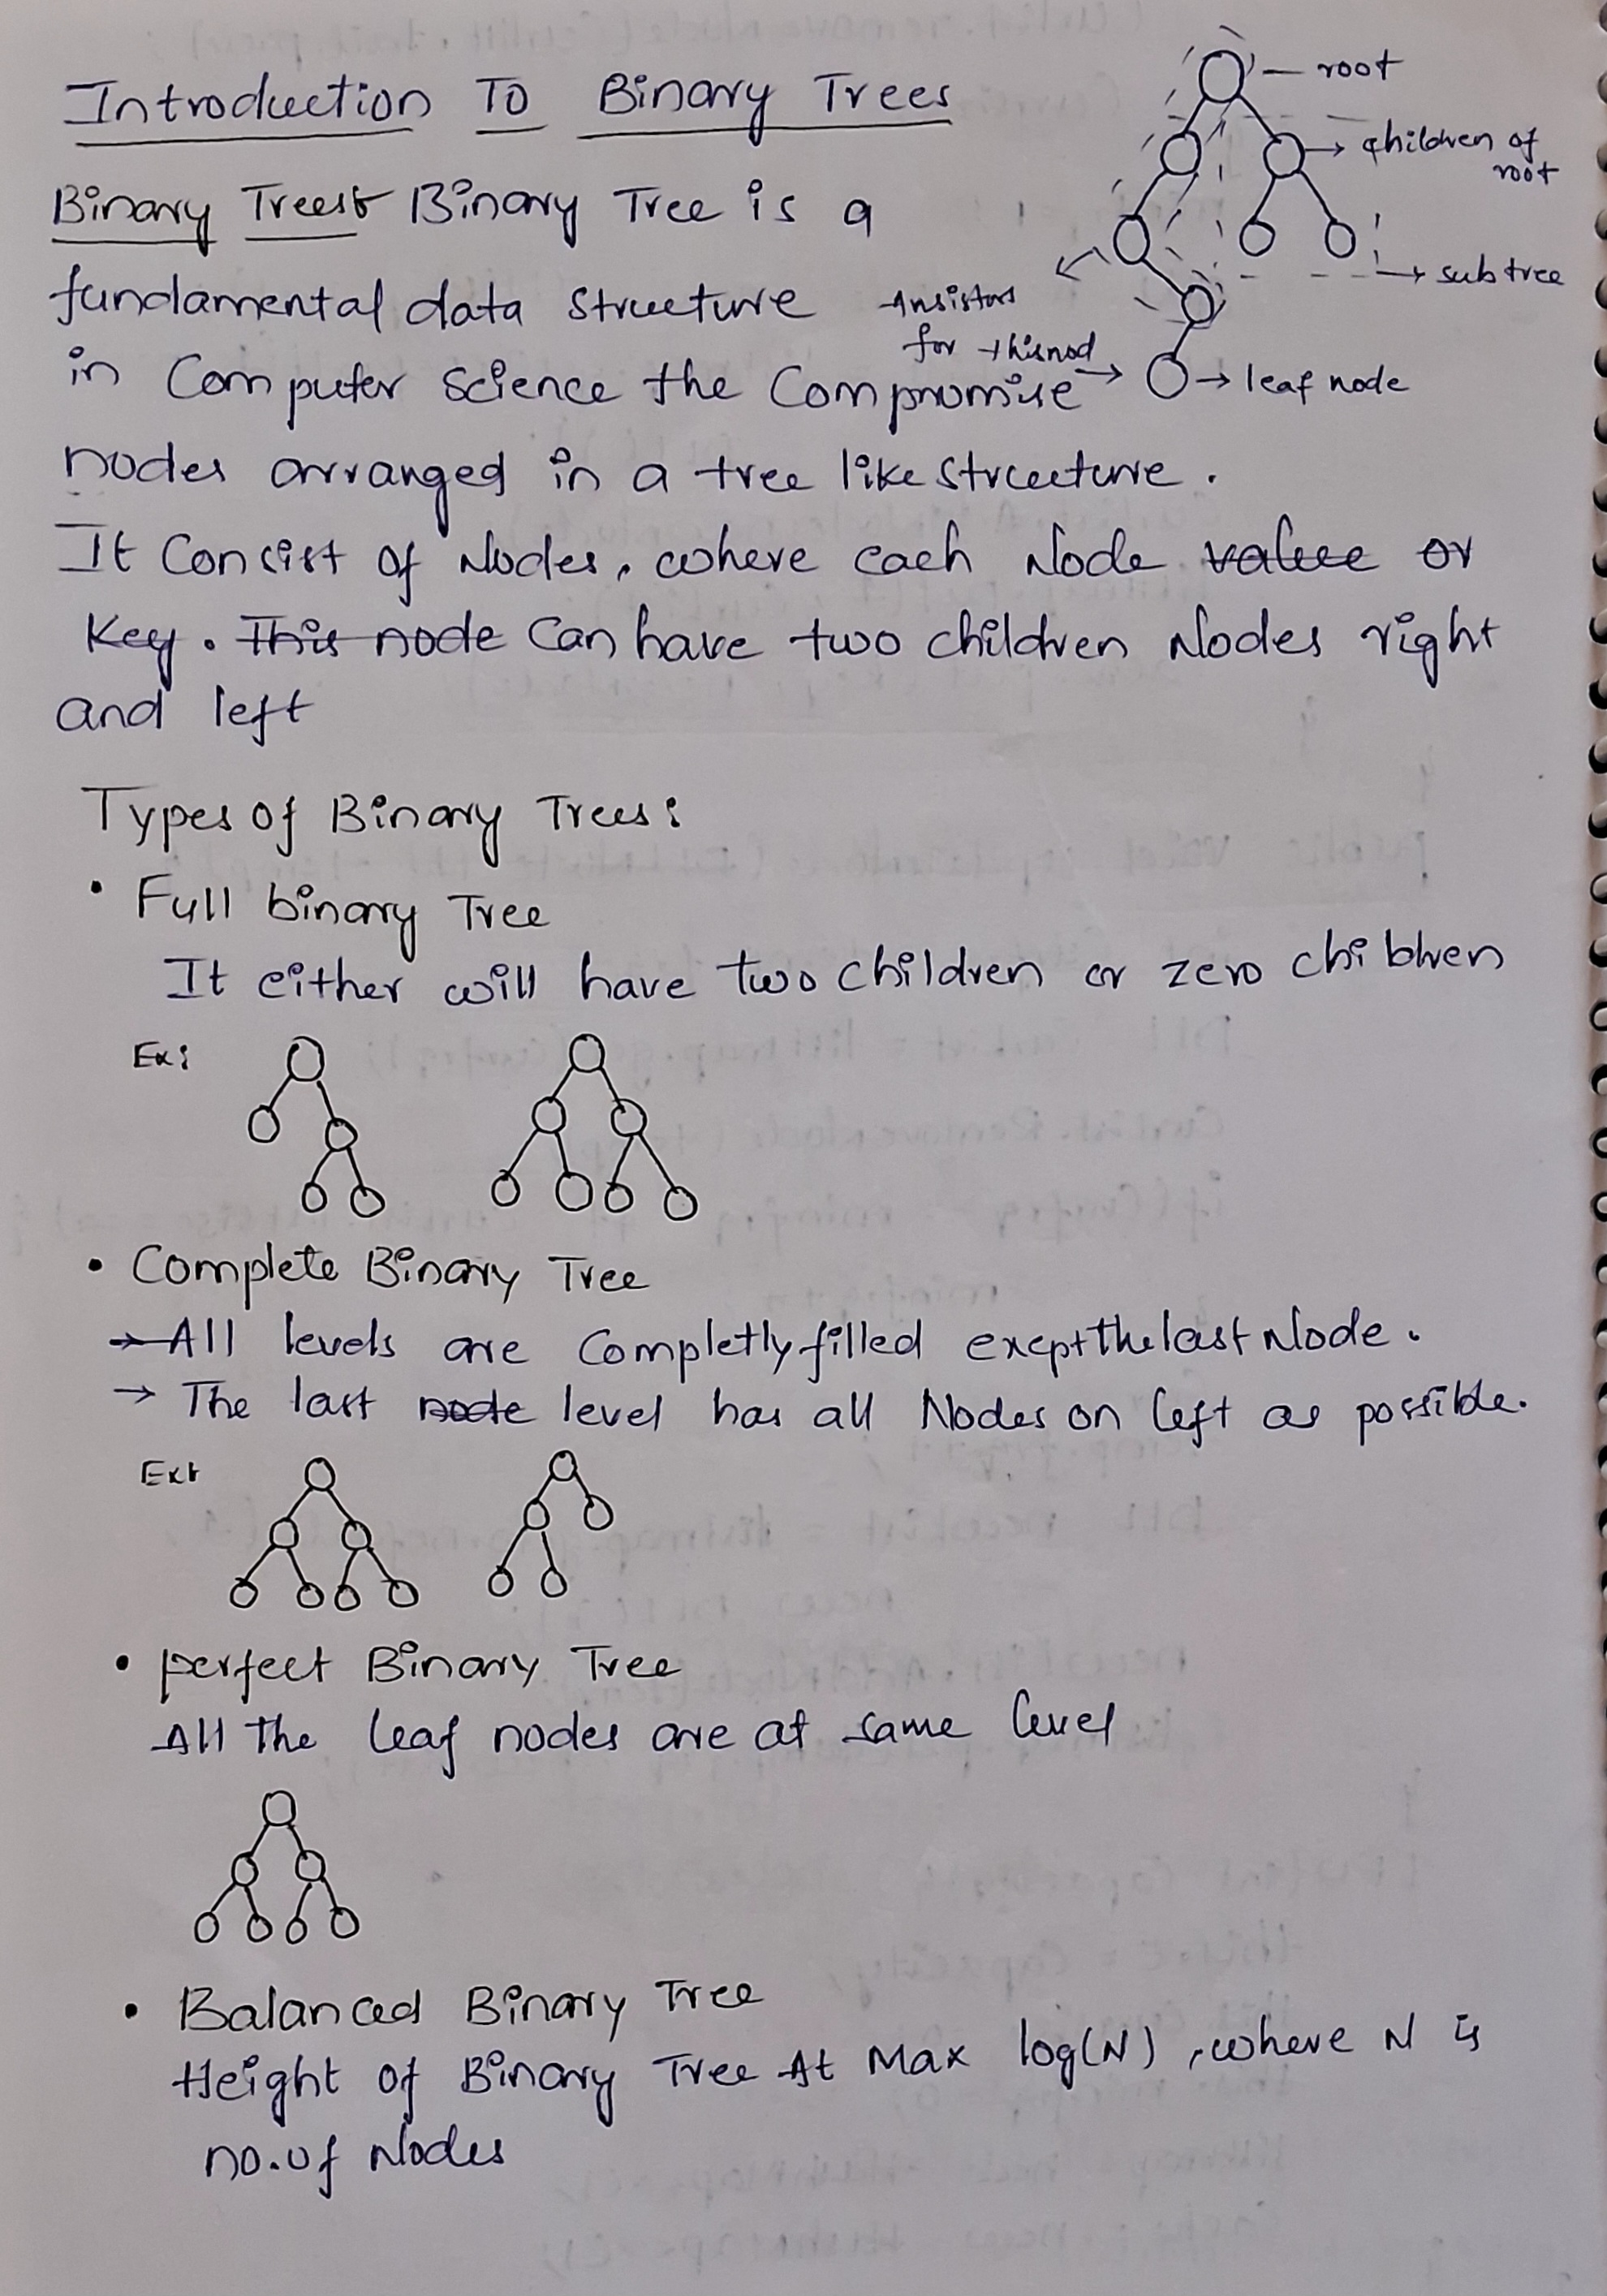 Introduction To Binary Trees
root
children of
root
subtree
Ansistors
for thisnod
leaf node
Binary Trees: Binary Tree is a
fundamental data structure
in Computer science the Compromise
nodes arranged in a tree like structure.
It Consist of Nodes, where each Node value or
Key. This node Can have two children Nodes right
and left
Types of Binary Trees:
• Full binary Tree
It either will have two children or zero children
Ex:
• Complete Binary Tree
→ All levels are Completly filled exept the last Node.
→ The last node level has all Nodes on left as possible.
Ex:
• perfect Binary Tree
All the leaf nodes are at same level
• Balanced Binary Tree
Height of Binary Tree At Max log(N), where N is
no.of Nodes